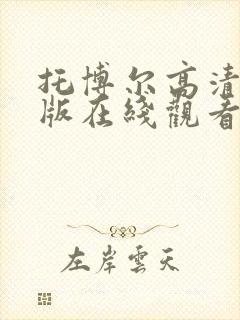 托博尔高清
版在线觀看
左岸雲天